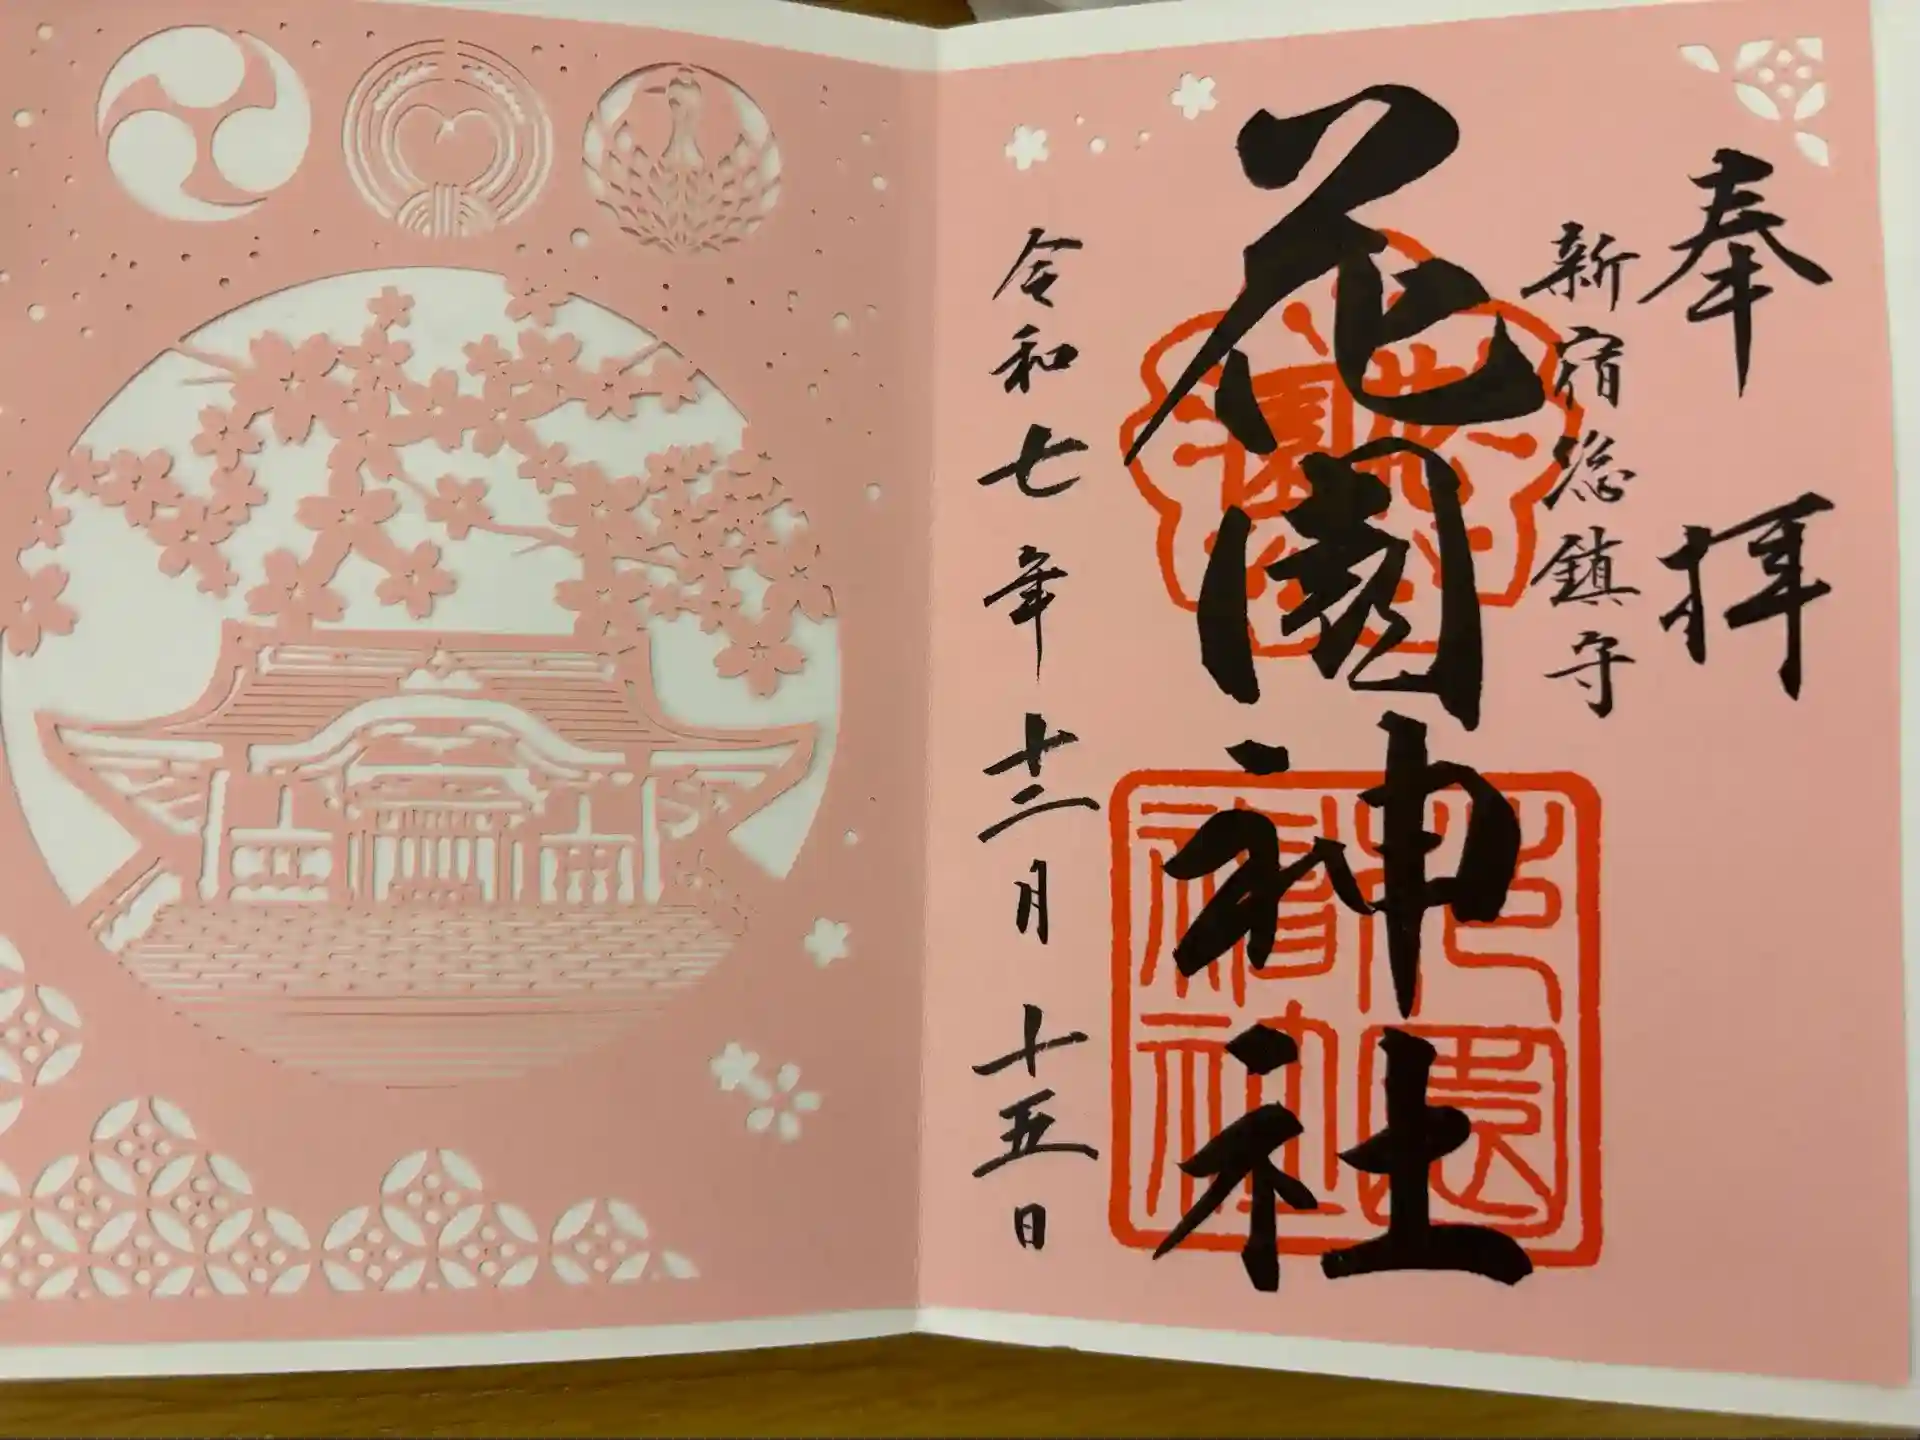 奉拝
新宿総鎮守
花園神社
令和七年十二月十五日
花園稲荷神社